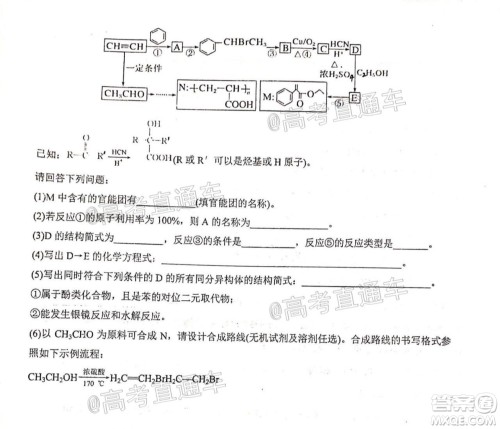 CH≡CH ① A ② CHBrCH₃ ③ B Cu/O₂ △④ C HCN H⁺ D
一定条件 △ 浓H₂SO₄ C₂H₅OH
CH₃CHO N: CH₂—CH COOH M: O ⑤ E
已知: R—C—R′ O HCN H⁺ R—C—R′ OH COOH(R 或 R′ 可以是烃基或 H 原子)。
请回答下列问题:
(1)M 中含有的官能团有 (填官能团的名称)。
(2)若反应①的原子利用率为 100%，则 A 的名称为 。
(3)D 的结构简式为 ，反应③的条件是 ，反应⑤的反应类型是 。
(4)写出 D→E 的化学方程式: 。
(5)写出同时符合下列条件的 D 的所有同分异构体的结构简式: 。
①属于酚类化合物，且是苯的对位二元取代物;
②能发生银镜反应和水解反应。
(6)以 CH₃CHO 为原料可合成 N，请设计合成路线(无机试剂及溶剂任选)。合成路线的书写格式参
照如下示例流程:
CH₃CH₂OH 浓硫酸 170 ℃ H₂C═CH₂BrH₂C—CH₂Br
@高考直通车
@高考直通车
@高考直通车
@高考直通车
答案圈
MXQE.COM